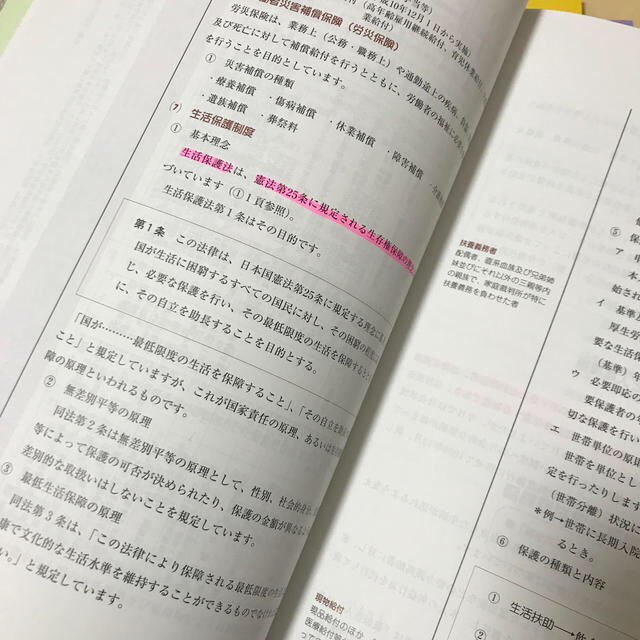 者災害補償保険（労災保険）
労災保険は、業務上（公務・職務上）や通勤途上の疾病、
及び死亡に対して補償給付を行うとともに、労働者の福祉に
を行うことを目的としています。
① 災害補償の種類
・療養補償 ・傷病補償 ・休業補償 ・障害補償
・遺族補償 ・葬祭料
⑺ 生活保護制度
① 基本理念
生活保護法は、憲法第25条に規定される生存権保障の
づいています（①1頁参照）。
生活保護法第1条はその目的です。
第1条 この法律は、日本国憲法第25条に規定する理念に
国が生活に困窮するすべての国民に対し、その困窮の程度に
じ、必要な保護を行い、その最低限度の生活を保障すると
に、その自立を助長することを目的とする。
「国が………最低限度の生活を保障すること」、「その自立を
こと」と規定していますが、これが国家責任の原理、あるいは
障の原理といわれるものです。
② 無差別平等の原理
同法第2条は無差別平等の原理として、性別、社会的身分
等によって保護の可否が決められたり、保護の金額が異なる
差別的な取扱いはしないことを規定しています。
③ 最低生活保障の原理
同法第3条は、「この法律により保障される最低限度の生活
康で文化的な生活水準を維持することができるものでなけれ
い。」と規定しています。
扶養義務者
配偶者、直系血族及び兄弟姉
妹並びにそれ以外の三親等内
の親族で、家庭裁判所が特に
扶養義務を負わせた者
現物給付
現品給付のほか
医療給付等
⑤
ア 申
始され
イ 基準
厚生労
要な生活
（基準）年
ウ 必要即応の
要保護者の
切な保護を行い
エ 世帯単位の原
世帯を単位とし
定を行ったりします
（世帯分離）状況に
＊例→世帯に長期入院
るとき。
⑥ 保護の種類と内容
① 生活扶助
②